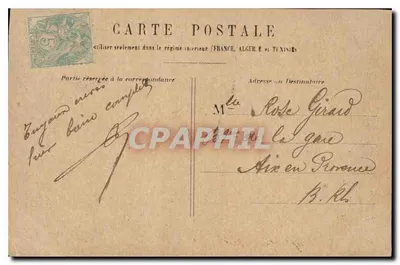 CARTE POSTALE
utiliser seulement dans le régime intérieur (FRANCE, ALGERIE et TUNISIE)
Partie réservée à la correspondance
Adresse du Destinataire
hier bain complet
Mlle Rose Girard
de la gare
Aix en Provence
B. Rh
CPAPHIL.COM